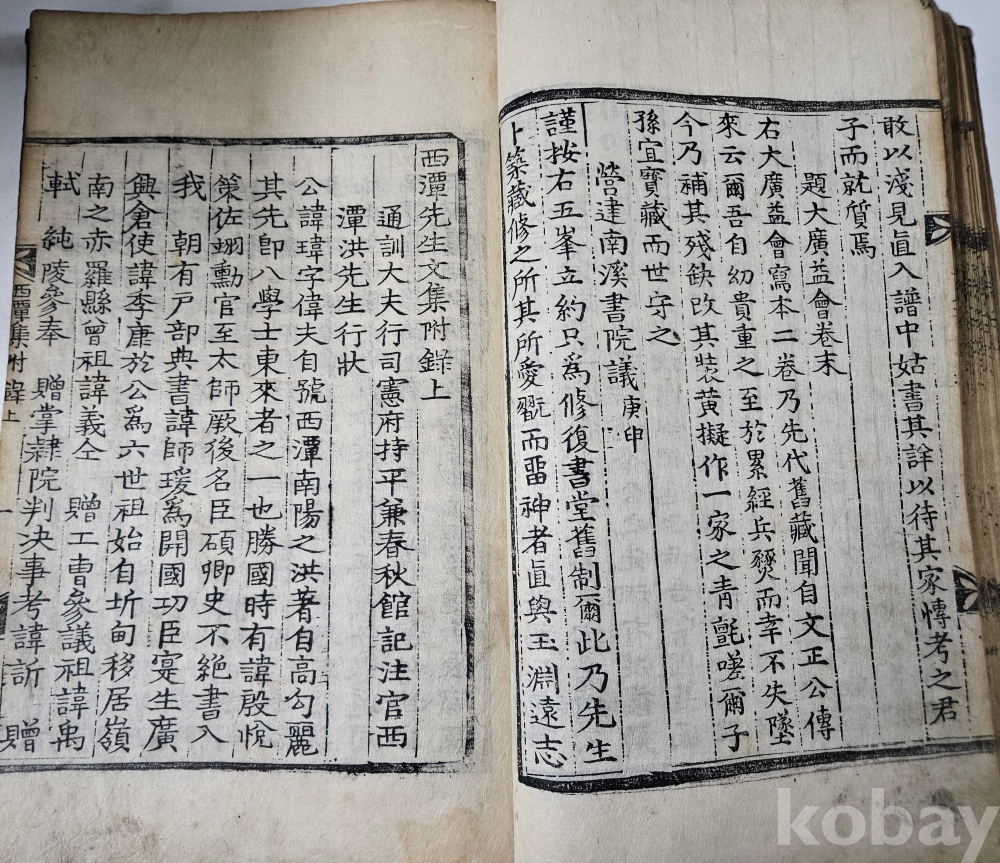 敢以淺見眞入譜中姑書其詳以待其家傳考之君
子而就質焉
題大廣益會卷末
右大廣益會寫本二卷乃先代舊藏聞自文正公傳
來云爾吾自幼貴重之至於累經兵燹而幸不失墜
今乃補其殘缺改其裝黄擬作一家之青氈嗟爾子
孫宜寶藏而世守之
營建南溪書院議庚申
謹按右五峯立約只爲修復書堂舊制爾此乃先生
卜築藏修之所其所愛翫而畱神者眞與玉淵遠志
西潭先生文集附錄上
通訓大夫行司憲府持平兼春秋館記注官西
潭洪先生行狀
公諱瑋字偉夫自號西潭南陽之洪著自高勾麗
其先卽八學士東來者之一也勝國時有諱殷悅
策佐翊勳官至太師厥後名臣碩卿史不絶書入
我 朝有戸部典書諱師瑗爲開國功臣寔生廣
興倉使諱李康於公爲六世祖始自圻甸移居嶺
南之赤羅縣曾祖諱義仝 贈工曹參議祖諱禹
軾 純陵參奉 贈掌隸院判决事考諱訢 贈
西潭集附錄上
kobay